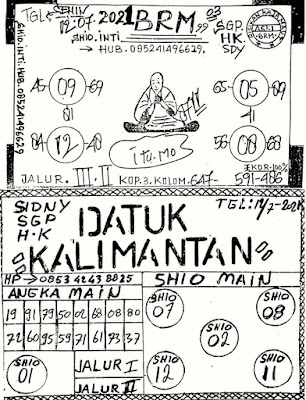 TGL= SENIN
12-07-2021 BRM 99 03
SHIO.INTI
HUB. 085241496629.
SGP
HK
SDY
ASLI
BRM
SHIO.INTI.HUB.085241496629
45 09 69
65 05 89
01
01
84 12 48
56 08 68
itu.mo
EKOR-100%
JALUR. III-II KOP.3.KOLOM-647-
591-486
SIDNY
SGP
H.K
TGL:12/7-2021
DATUK
KALIMANTAN
HP→0853 4243 8825
SHIO MAIN
ANGKA MAIN
19 91 79 50 02 68 08 80
72 60 95 59 71 61 73 37
SHIO
07
SHIO
08
SHIO
02
SHIO
01
JALUR I
JALUR II
SHIO
12
SHIO
11